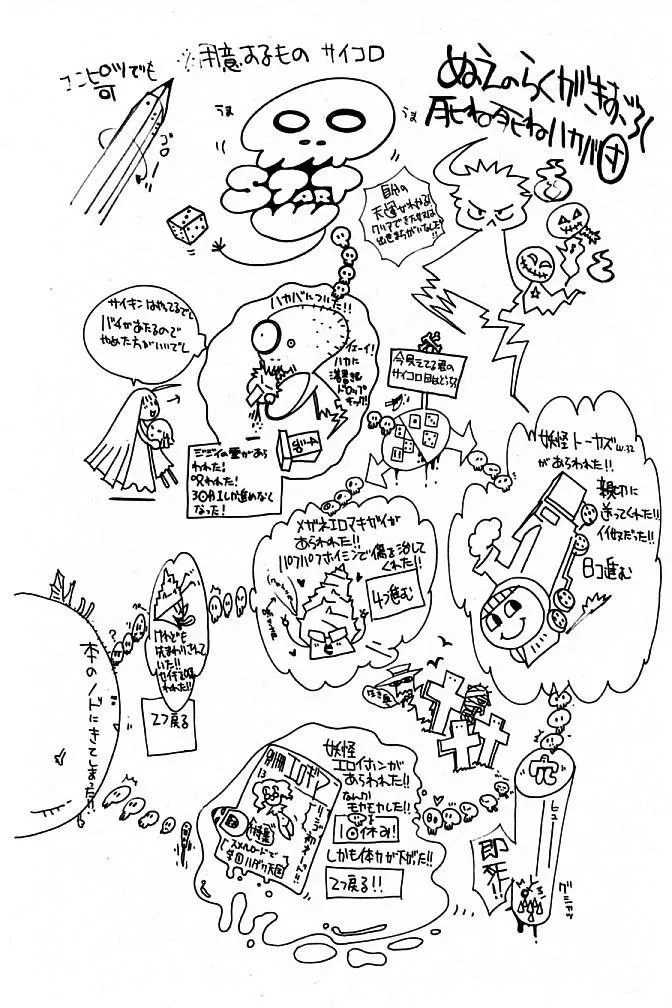 ぬえのらくがきすごろく
死ね死ねハカバ村
※用意するもの サイコロ
エンピツでも
可
コロ
うま
うま
START
自分の
天運がわかる!
クリアできた方は
出世まちがいなし!!
サイキンはやってるでし
バチがあたるので
やめた方がいいでし
ハカバについた!!
イェーイ!
ハカに
ドロップ
キック!
ジジイの霊があら
われた!
呪われた!
3回1しか進めなく
なった!
今見えてる君の
サイコロの目はどっち
妖怪トーカズ
があらわれた!!
親切に
送ってくれた!!
イイ奴だった!!
8コ進む
メガネエロマキガイが
あらわれた!!
パフパフホイミンで傷を治して
くれた!!
4つ進む
けれども
先まわりされて
いた!!
2つ戻る
本のノドにきてしまった!!
妖怪
エロイホンが
あらわれた!!
なんか
モヤモヤした!!
1回休み!
しかも体力が下がった!!
2つ戻る!!
別冊エロギン
13
特集
スメルロードで
学園ハダカ天国
穴
ヒュー
即死!!